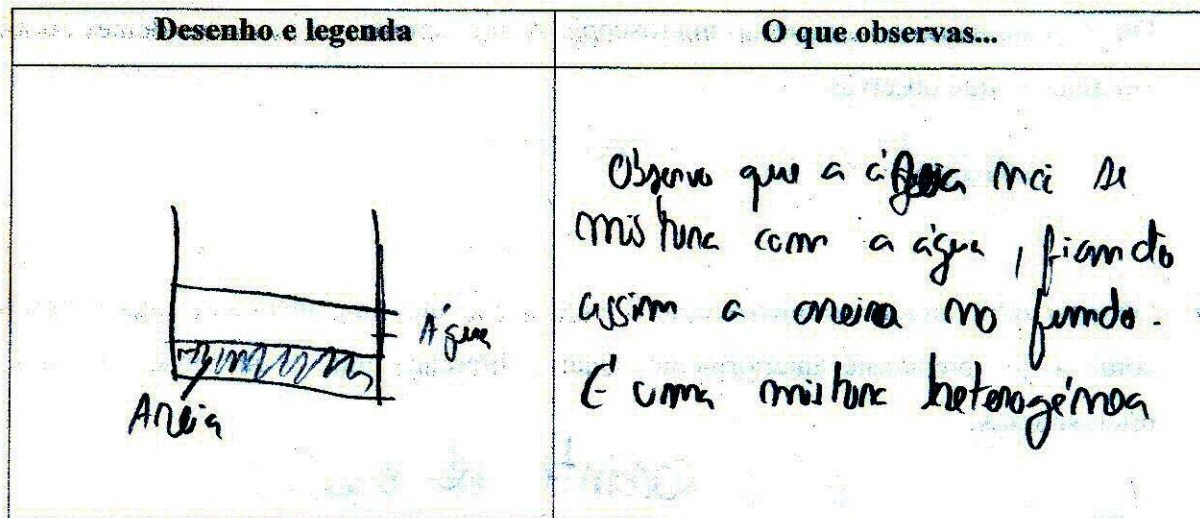 Desenho e legenda
O que observas...
Água
Areia
Observo que a não se
mistura com a água, ficando
assim a areia no fundo.
É uma mistura heterogénea